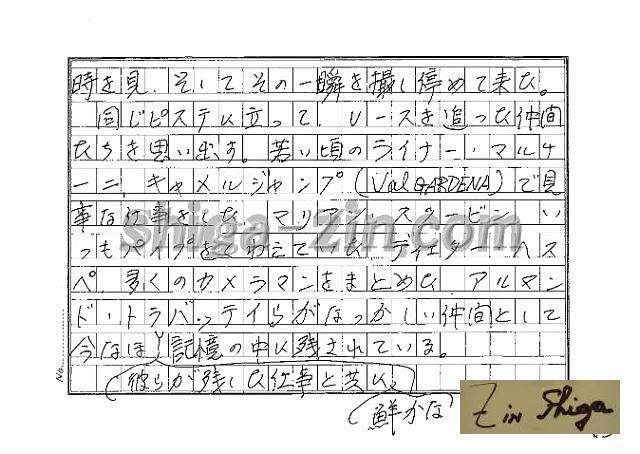 時を見、そしてその一瞬を撮し停めて来た。
同じピステに立って、レースを追った仲間
たちを思い出す。若い頃のライナー・マルチ
ーニ、キャメルジャンプ(Val GARDENA)で見
事な仕事をした、マリアン・スタービン、い
つもパイプをくわえていた、ディーター・ヘス
ペ、多くのカメラマンをまとめた、アルマン
ド・トラバッテイらがなつかしい仲間として
今なほ、記憶の中に残されている。
(彼らが残した仕事と共に、
(鮮かな
shiga-zin.com
Z in Shiga
No.